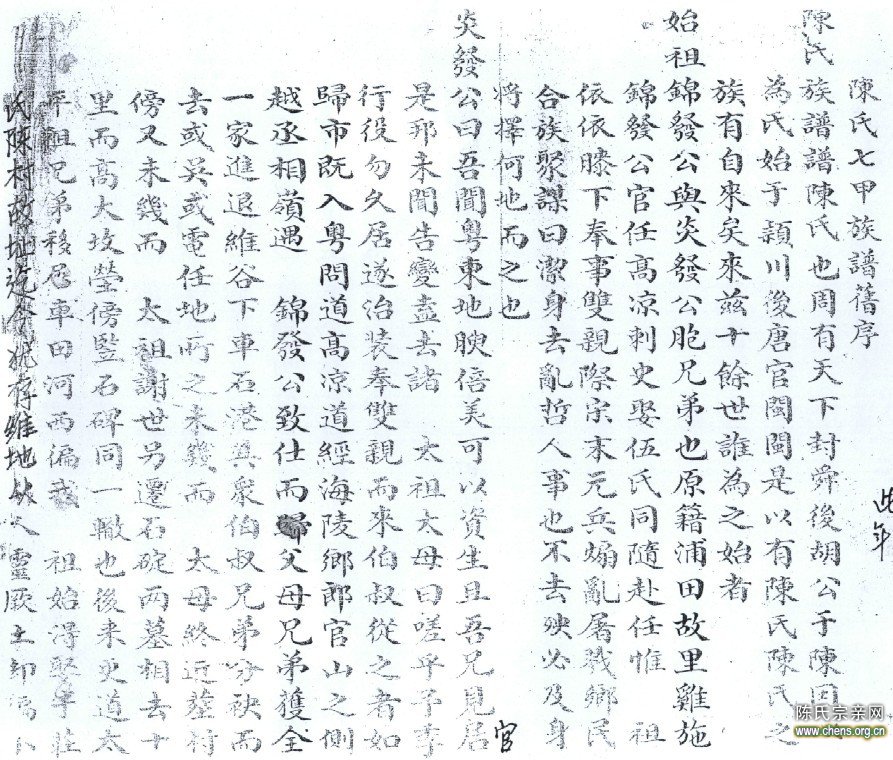 陳氏七甲族譜舊序
陳氏族譜譜陳氏也周有天下封舜後胡公于陳因
為氏始于穎川後唐官閩閩是以有陳氏陳氏之
族有自來矣來茲十餘世誰為之始者
始祖錦發公與炎發公胞兄弟也原籍浦田故里雞施
錦發公官任高凉刺史娶伍氏同隨赴任惟 祖
依依膝下奉事雙親際宋末元兵煽亂屠戮鄉民
合族聚謀曰潔身去亂哲人事也不去殃必及身
將擇何地而之也
炎發公曰吾聞粵東地腴俗美可以資生且吾兄見居
官
是邦未聞告變盍去諸 太祖太母曰嗟乎予季
行役勿久居遂治装奉雙親而來伯叔從之者如
歸市既入粵問道高凉道經海陵鄉郎官山之側
越丞相嶺遇 錦發公致仕而歸父母兄弟獲全
一家進退維谷下車石港與衆伯叔兄弟分袂而
去或吳或電任地所之未幾而 太母終近葬村
傍又未幾而 太祖謝世另遷石碇兩墓相去十
里而高大坟塋傍豎石碑同一轍也後来更道太
平 祖兄弟移居車田河西偏哉 祖始得聚于莊
氏陳村故址迄今犹存維地 人靈厥土
此年
陈氏宗亲网
www.chens.org.cn